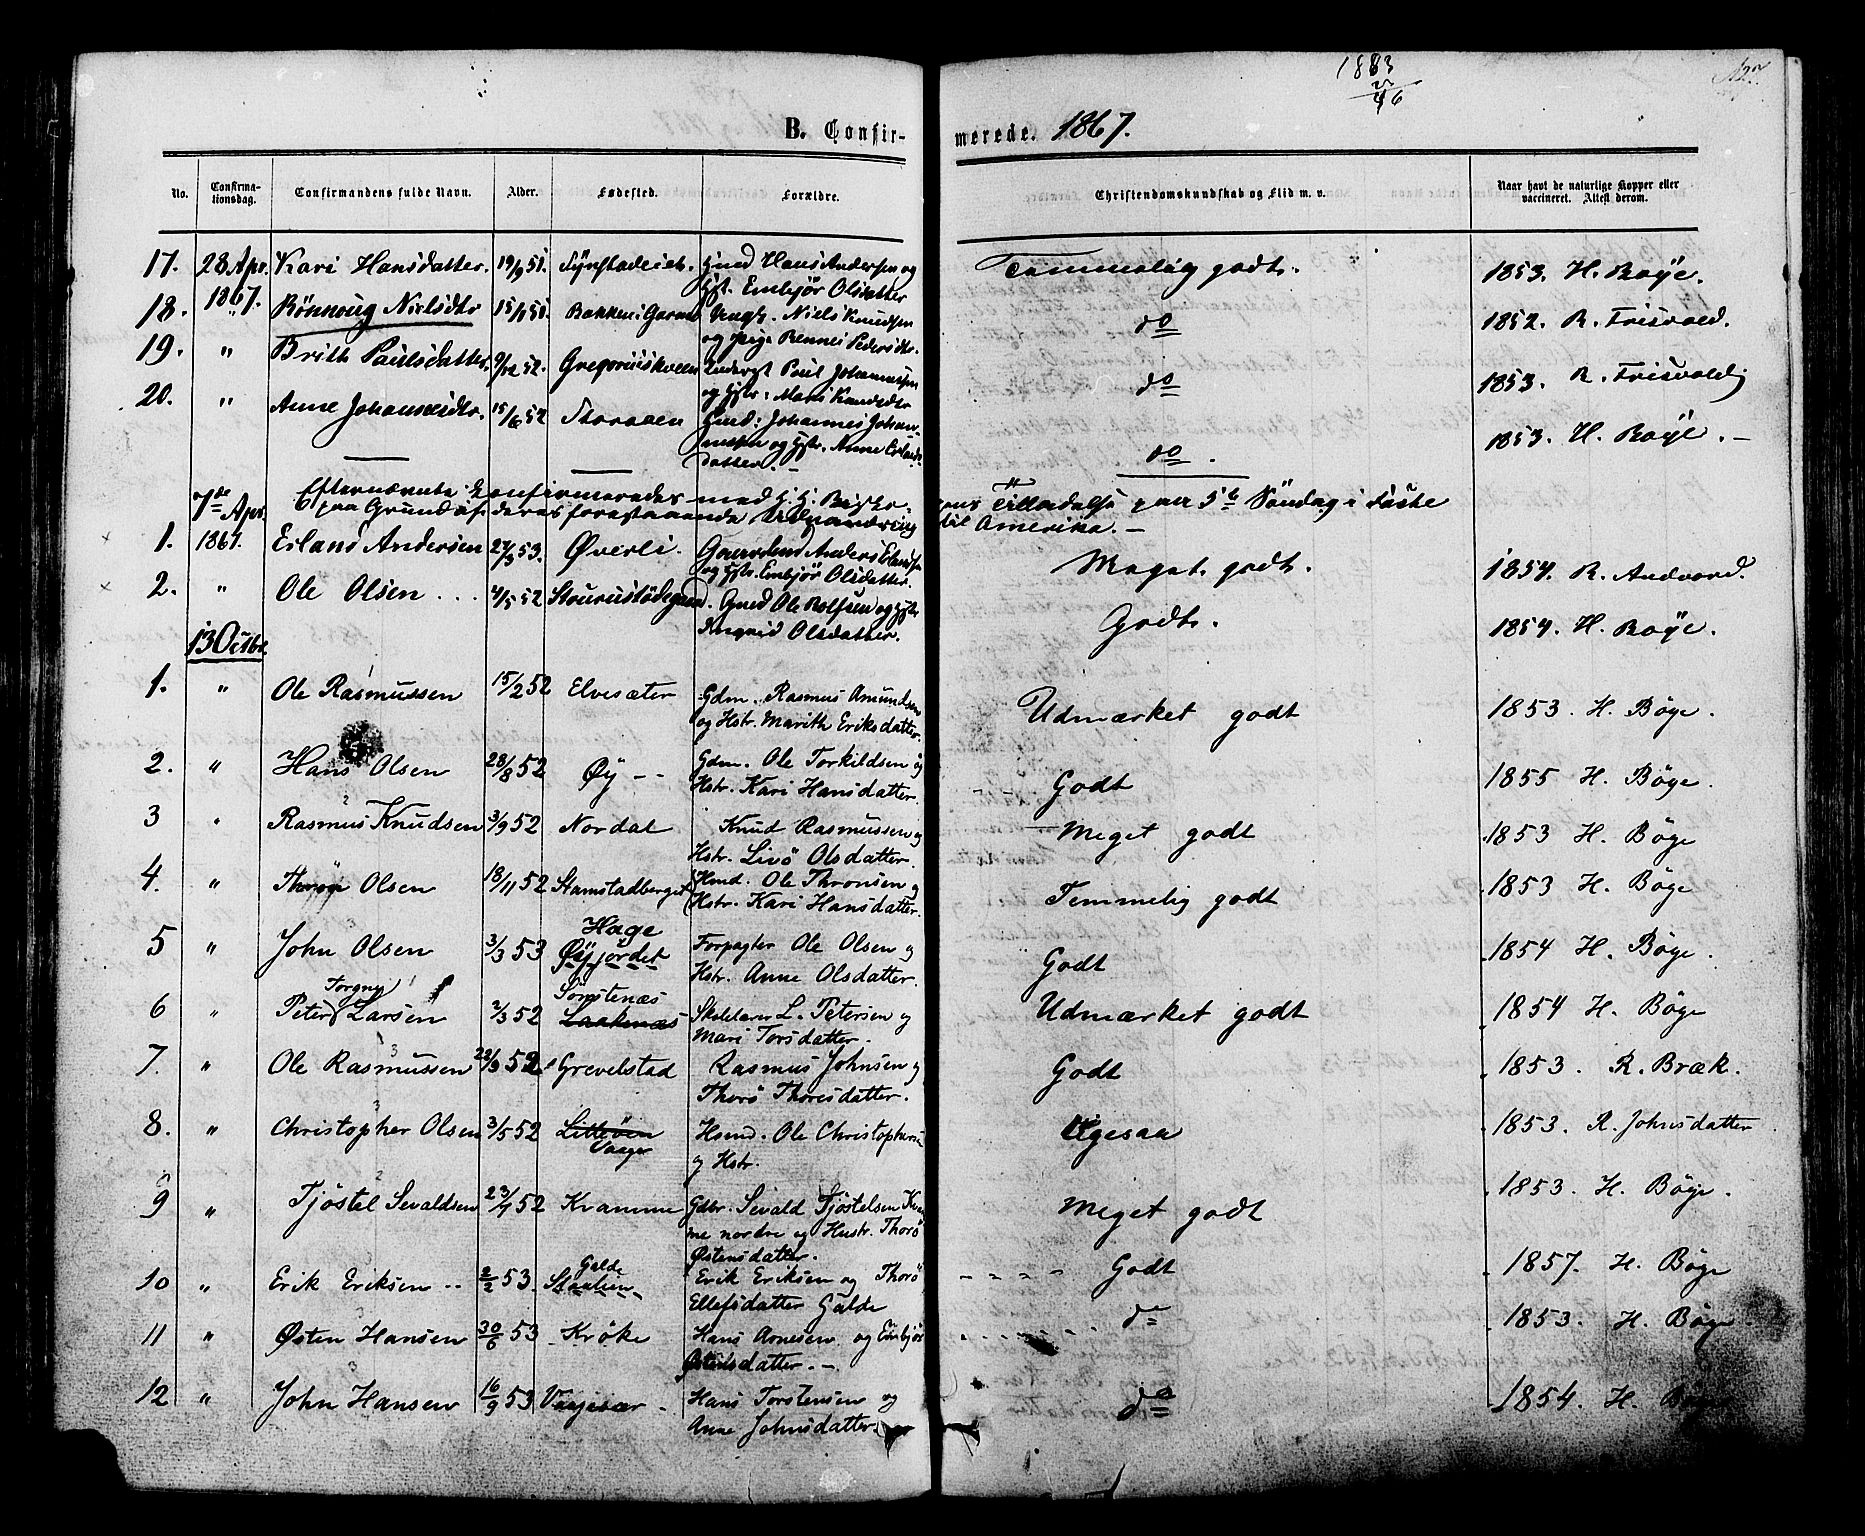 1883
B. Confir-merede. 1867.
No. Confirma-tionsdag. Confirmandens fulde Navn. Alder. Fødested. Forældre. Christendomskundskab og Flid m. v. Naar havt de naturlige Kopper eller vaccineret. Attest derom.
17. 28 Apr. 1867. Kari Hansdatter. 19/9 51. Synstadeie. Gmd Hans Andersen og Hst. Embjør Olsdatter Temmelig godt. 1853. H. Bøye.
18. " Rönnoug Nielsdtr 15/1 51. Bakken i Garmo Ungk. Niels Knudsen og Pige Rennei Pedersdtr. do 1852. R. Frisvold.
19. " Brith Paulsdatter. 9/12 52. Paul Johannessen og Hstr. Mari Knudsdtr do 1853. R. Frisvold
20. " Anne Johannesdtr. 15/6 52 Storøen Gmd: Johannes Johannesen og Hstr. Anne Erlandsdatter. do. 1853. H. Bøye.
7de Apr. 1867. Efternævnte Konfirmeredes med H. H. Biskopens Tilladelse paa 5te Söndag i Faste
paa Grund af deres forestaaende Udvandring til Amerika.
1. Erland Andersen 27/3 53. Øverli. Gaardmd Anders Erlandsen og Hstr. Embjör Olsdatter. Meget godt. 1854. R. Andvord.
2. " Ole Olsen 4/5 52 Gmd Ole Rolfsen og Hstr. Ingrid Olsdatter. Godt. 1854. H. Bøye.
13 Octbr.
1. " Ole Rasmussen 15/2 52 Elvesæter Gdm. Rasmus Amundsen og Hstr. Marith Eriksdatter. Udmærket godt 1853. H. Böge.
2. " Hans Olsen 28/8 52 Øy Gdm. Ole Torkildsen og Hstr. Kari Hansdatter. Godt 1855 H. Böge.
3 " Rasmus Knudsen 3/9 52 Nordal Knud Rasmussen og Hstr. Livö Olsdatter. Meget godt 1853 H. Böge
4. " Olsen 18/11 52 Stamstadberget Hmd. Ole Thronsen og Hstr. Kari Hansdatter. Temmelig godt 1853 H. Böge
5 " John Olsen 3/3 53 Hage Øyjordet Forpagter Ole Olsen og Hstr. Anne Olsdatter. Godt 1854 H. Böge.
6 " Peter Torgny Larsen 2/3 52 Sømstenæs Skolelærer L. Petersen og Mari Torsdatter. Udmærket godt 1854 H. Böge
7. " Ole Rasmussen 23/9 52 Grevelstad Rasmus Johnsen og Thorö Thoresdatter. Godt 1853. R. Bræk.
8. " Christopher Olsen 3/5 52 Litleøen Vaager Hsmd. Ole Christophersen og Hstr. Ligesaa 1853. R. Johnsdatter
9 " Tjöstel Sevaldsen 23/7 52 Kvamme Gdbr. Sevald Tjöstelsen Kvamme nordre og Hustr. Thorö Østensdatter. Meget godt 1853. H. Böge.
10 " Erik Eriksen 2/2 53. Galde Erik Eriksen og Thorö Ellefsdatter Galde Godt 1857. H. Böge
11 " Østen Hansen 30/6 53 Kröke Hans Arnesen og Embjör Østensdatter. do 1853. H. Böge
12 " John Hansen 16/9 53 Hans Torstensen og Anne Johnsdatter. do 1854. H. Böge